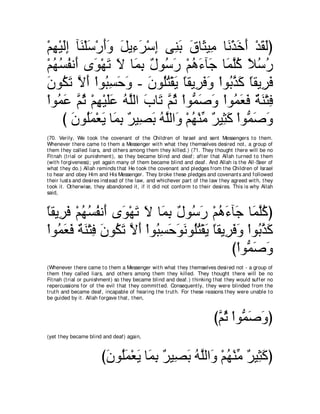 (لَقَدْ أَخَذْنَا مِيثَاقَ بَنِى إِسْرَءِيلَ وَأَرْسَلْنَآ إِلَيْهِمْ
رُسُلاً كُلَّمَا جَآءَهُمْ رَسُولٌ بِمَا لاَ تَهْوَى أَنفُسُهُمْ
فَرِيقاً كَذَّبُواْ وَفَرِيقاً يَقْتُلُونَ - وَحَسِبُواْ أَلاَّ تَكُونَ
فِتْنَةٌ فَعَمُواْ وَصَمُّواْ ثُمَّ تَابَ اللَّهُ عَلَيْهِمْ ثُمَّ عَمُواْ
وَصَمُّواْ كَثِيرٌ مِّنْهُمْ وَاللَّهُ بَصِيرٌ بِمَا يَعْمَلُونَ )
(70. Verily, We took the covenant of the Children of Israel and sent Messengers to them. Whenever there came to them a Messenger with what they themselves desired not, a group of them they called liars, and others among them they killed.) (71. They thought there will be no Fitnah (trial or punishment), so they became blind and deaf; after that Allah turned to them (with forgiveness); yet again many of them became blind and deaf. And Allah is the All-Seer of what they do.) Allah reminds that He took the covenant and pledges from the Children of Israel to hear and obey Him and His Messenger. They broke these pledges and covenants and followed their lusts and desires instead of the law, and whichever part of the law they agreed with, they took it. Otherwise, they abandoned it, if it did not conform to their desires. This is why Allah said,
(كُلَّمَا جَآءَهُمْ رَسُولٌ بِمَا لاَ تَهْوَى أَنفُسُهُمْ فَرِيقاً
كَذَّبُواْ وَفَرِيقاً يَقْتُلُونَوَحَسِبُواْ أَلاَّ تَكُونَ فِتْنَةٌ فَعَمُواْ
وَصَمُّواْ)
(Whenever there came to them a Messenger with what they themselves desired not - a group of them they called liars, and others among them they killed. They thought there will be no Fitnah (trial or punishment), so they became blind and deaf.) thinking that they would suffer no repercussions for of the evil that they committed. Consequently, they were blinded from the truth and became deaf, incapable of hearing the truth. For these reasons they were unable to be guided by it. Allah forgave that, then,
(ثُمَّ وَصَمُّواْ)
(yet they became blind and deaf) again,
(كَثِيرٌ مِّنْهُمْ وَاللَّهُ بَصِيرٌ بِمَا يَعْمَلُونَ)